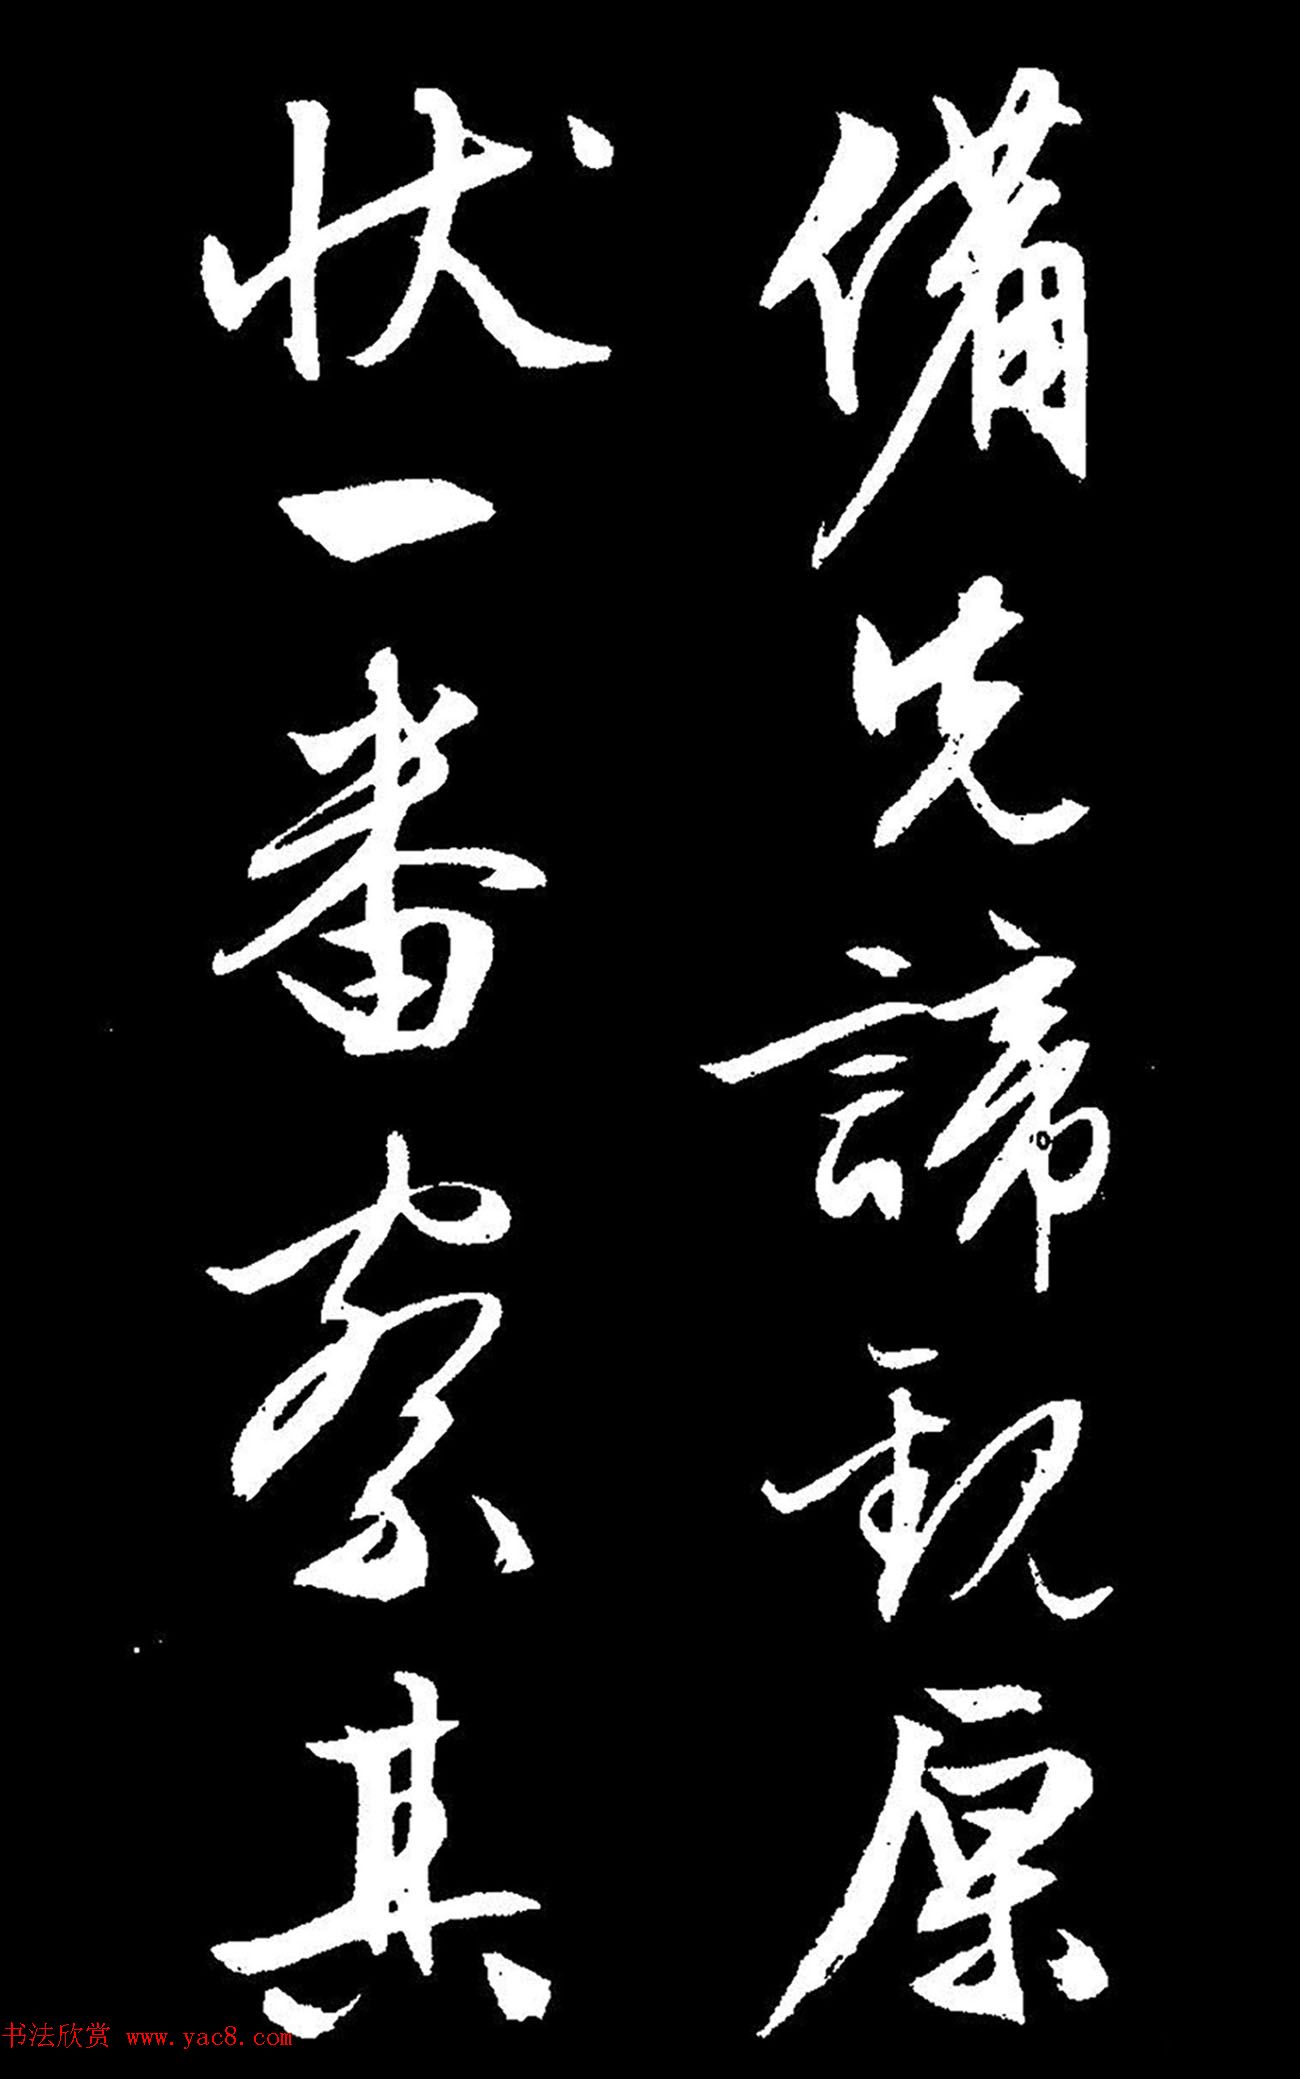 備先諦觀原
状一番察其
书法欣赏 www.yac8.com